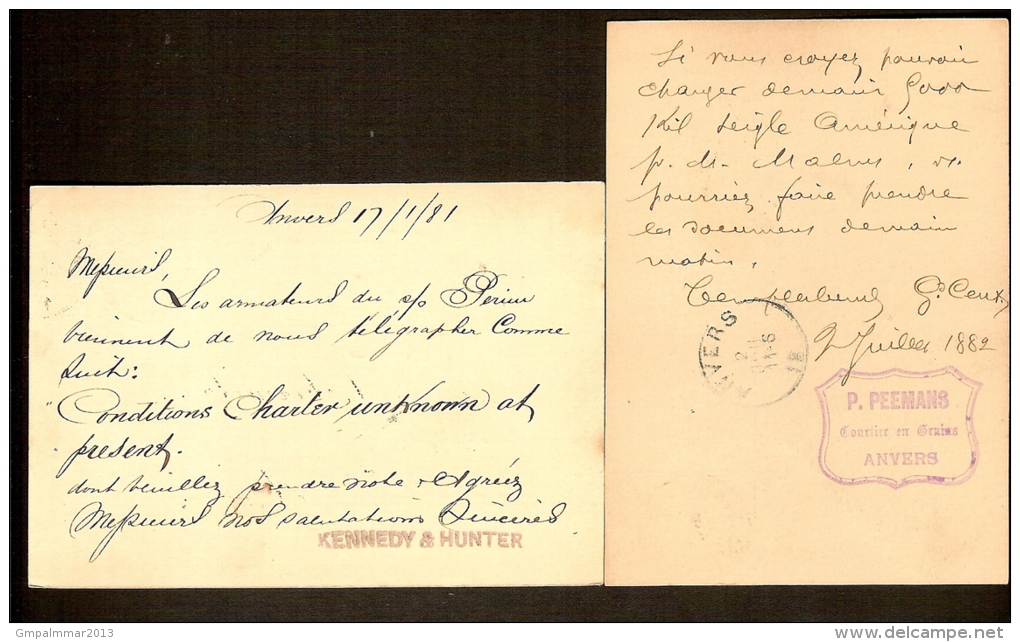 Anvers 17/1/81
Messieurs,
Les armateurs du s/s
viennent de nous télégrapher Comme
suit:
Conditions Charter unknown at
present.
dont veuillez prendre note & Agréez
Messieurs nos salutations Sincères
KENNEDY & HUNTER
Si vous croyez pouvoir
charger demain
Kil seigle Amérique
p. M. vs
pourriez faire prendre
les documens demain
matin.
2 Juillet 1882
ANVERS
P. PEEMANS
Courtier en Grains
ANVERS
Gmpalmmar2013
delcampe.net